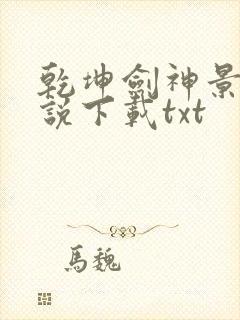 乾坤劍神景
說下載txt
馬魏